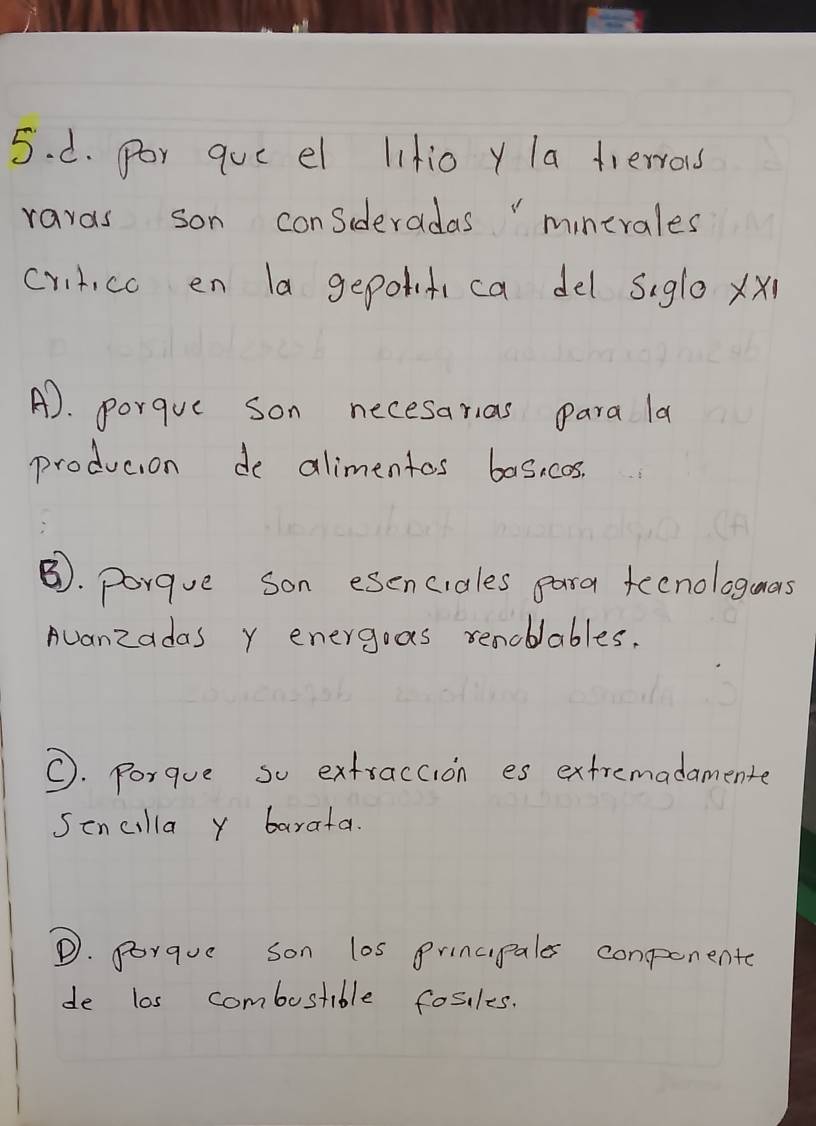 5.d. Por que el litio y la tierras
raras son consideradas "minerales
critico en la gepolitica del siglo XXI
A). porque son necesarias para la
producion de alimentos basicos.
B). Porque son esenciales para tecnologias
Avanzadas y energias renobables.
C). Porque su extracción es extremadamente
sencilla y barata.
D. Porque son los principales componente
de los combustible fosiles.